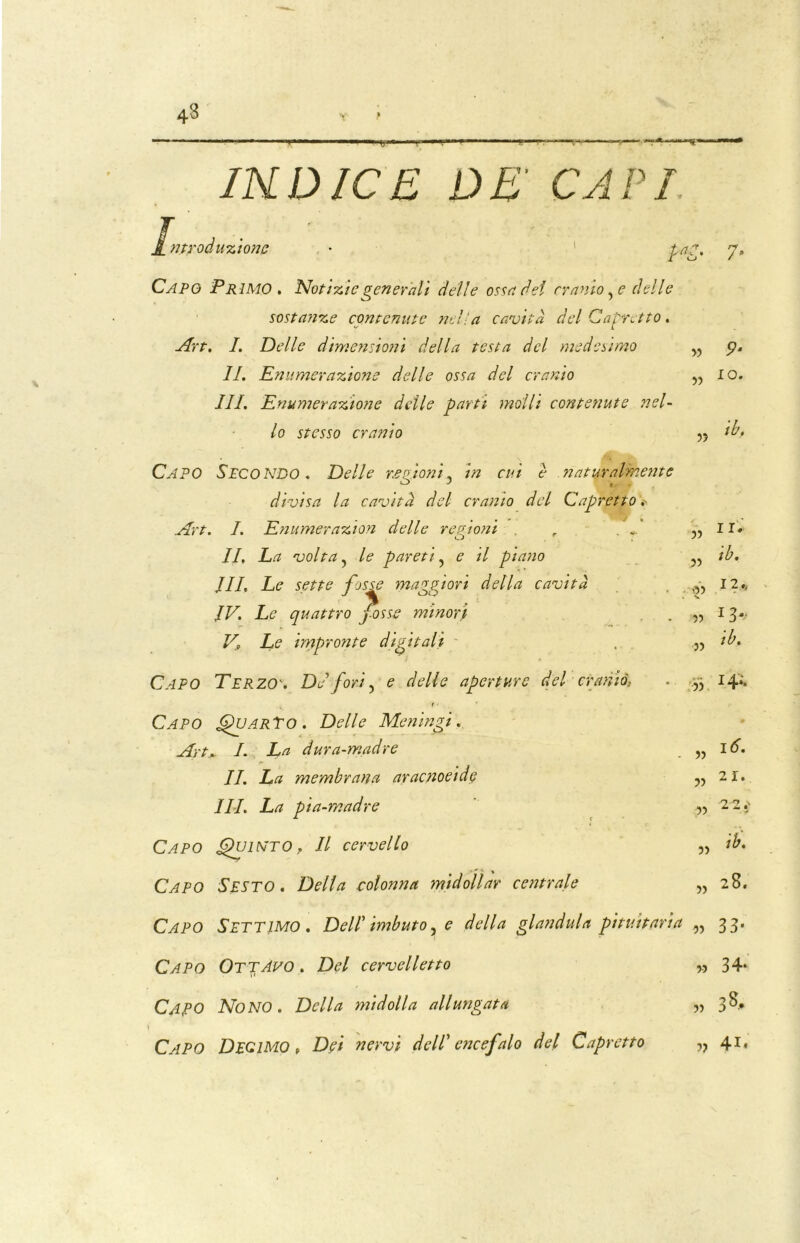 48
INDICE DE' CAPI
Introduzione pag. 7.
CAPO PRIMO. Notizie generali delle ossa del cranio, e delle
sostanze contenute nella cavità del Capretto.
Art. I. Delle dimensioni della testa del medesimo „ 9.
II. Enumerazione delle ossa del cranio „ 10.
III. Enumerazione delle parti molli contenute nel-
lo stesso cranio „ ib.
CAPO SECONDO. Delle regioni, in cui è naturalmente
divisa la cavità del cranio del Capretto.
Art. I. Enumerazion delle regioni „ 11.
II. La volta, le pareti, e il piano „ ib.
III. Le sette fosse maggiori della cavità „ 12.
IV. Le quattro fosse minori „ 13.
V. Le impronte digitali „ ib.
CAPO TERZO. De' fori, e delle aperture del cranio. „ 14.
CAPO QUARTO. Delle Meningi.
Art. I. La dura-madre „ 16.
II. La membrana aracnoeide „ 21.
III. La pia-madre „ 22.
CAPO QUINTO, Il cervello „ ib.
CAPO SESTO. Della colonna midollar centrale „ 28.
CAPO SETTIMO. Dell' imbuto, e della glandula pituitaria „ 33.
CAPO OTTAVO. Del cervelletto „ 34.
CAPO NONO. Della midolla allungata „ 38.
CAPO DECIMO, Dei nervi dell' encefalo del Capretto „ 41.